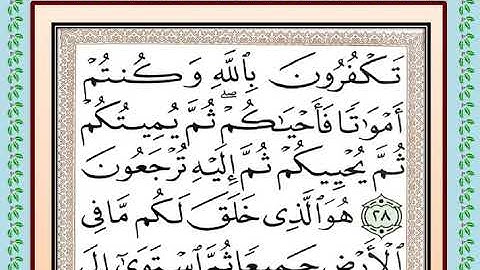 تَكْفُرُونَ بِٱللَّهِ وَكُنتُمْ
أَمْوَٰتًا فَأَحْيَٰكُمْ ۖ ثُمَّ يُمِيتُكُمْ
ثُمَّ يُحْيِيكُمْ ثُمَّ إِلَيْهِ تُرْجَعُونَ
٢٨ هُوَ ٱلَّذِى خَلَقَ لَكُم مَّا فِى
ٱلْأَرْضِ جَمِيعًا ثُمَّ ٱسْتَوَىٰٓ إِلَى